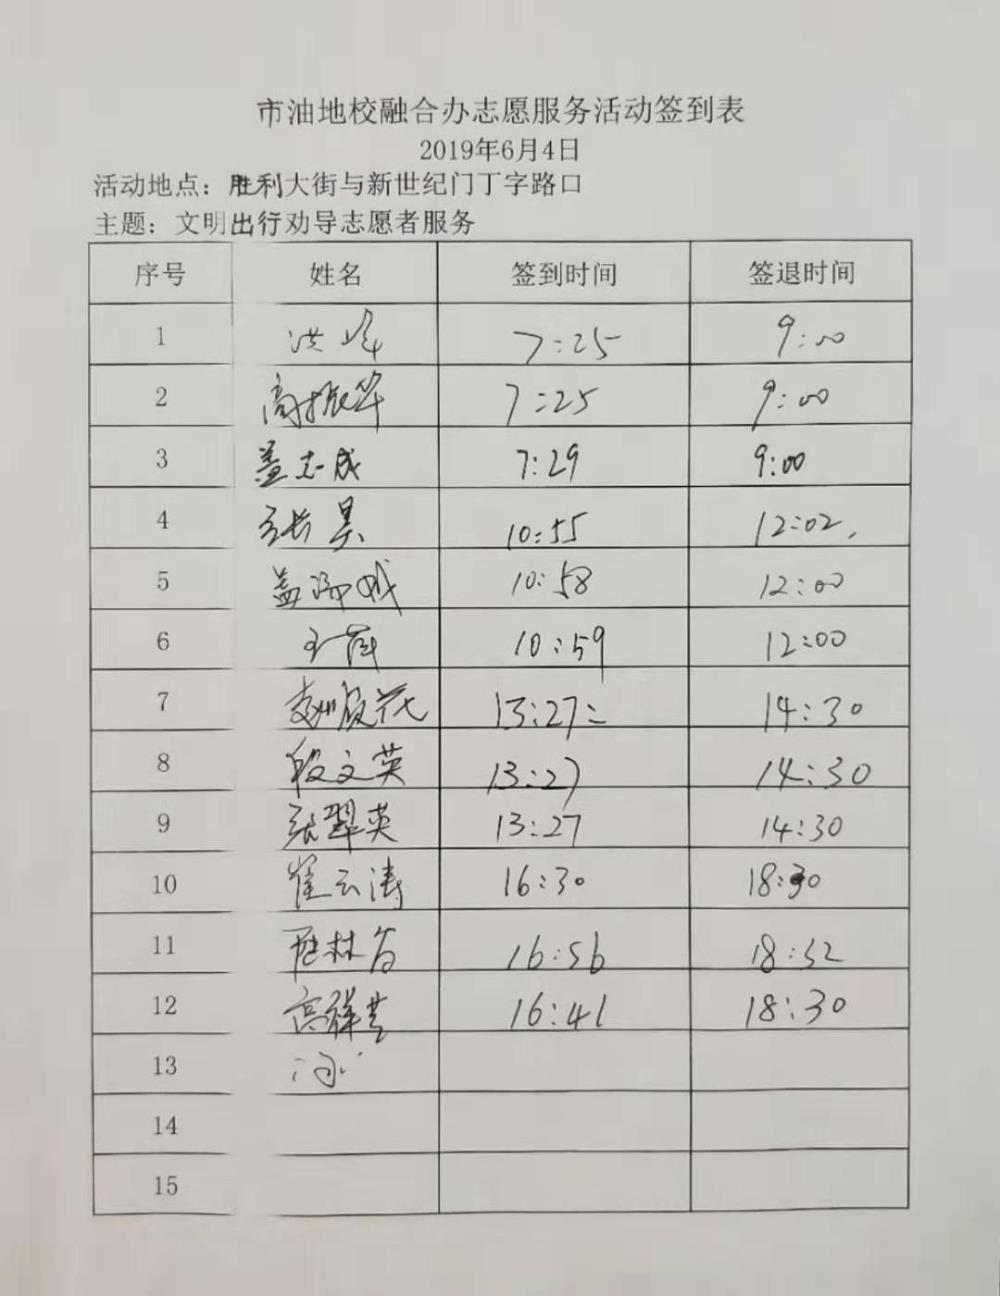 市油地校融合办志愿服务活动签到表
2019年6月4日
活动地点：胜利大街与新世纪门丁字路口
主题：文明出行劝导志愿者服务
序号 姓名 签到时间 签退时间
1 洪峰 7:25 9:00
2 高振华 7:25 9:00
3 盖志成 7:29 9:00
4 张昊 10:55 12:02.
5 盖 10:58 12:00
6 10:59 12:00
7 13:27 14:30
8 段文英 13:27 14:30
9 张翠英 13:27 14:30
10 崔云涛 16:30 18:30
11 16:56 18:32
12 高祥 16:41 18:30
13
14
15